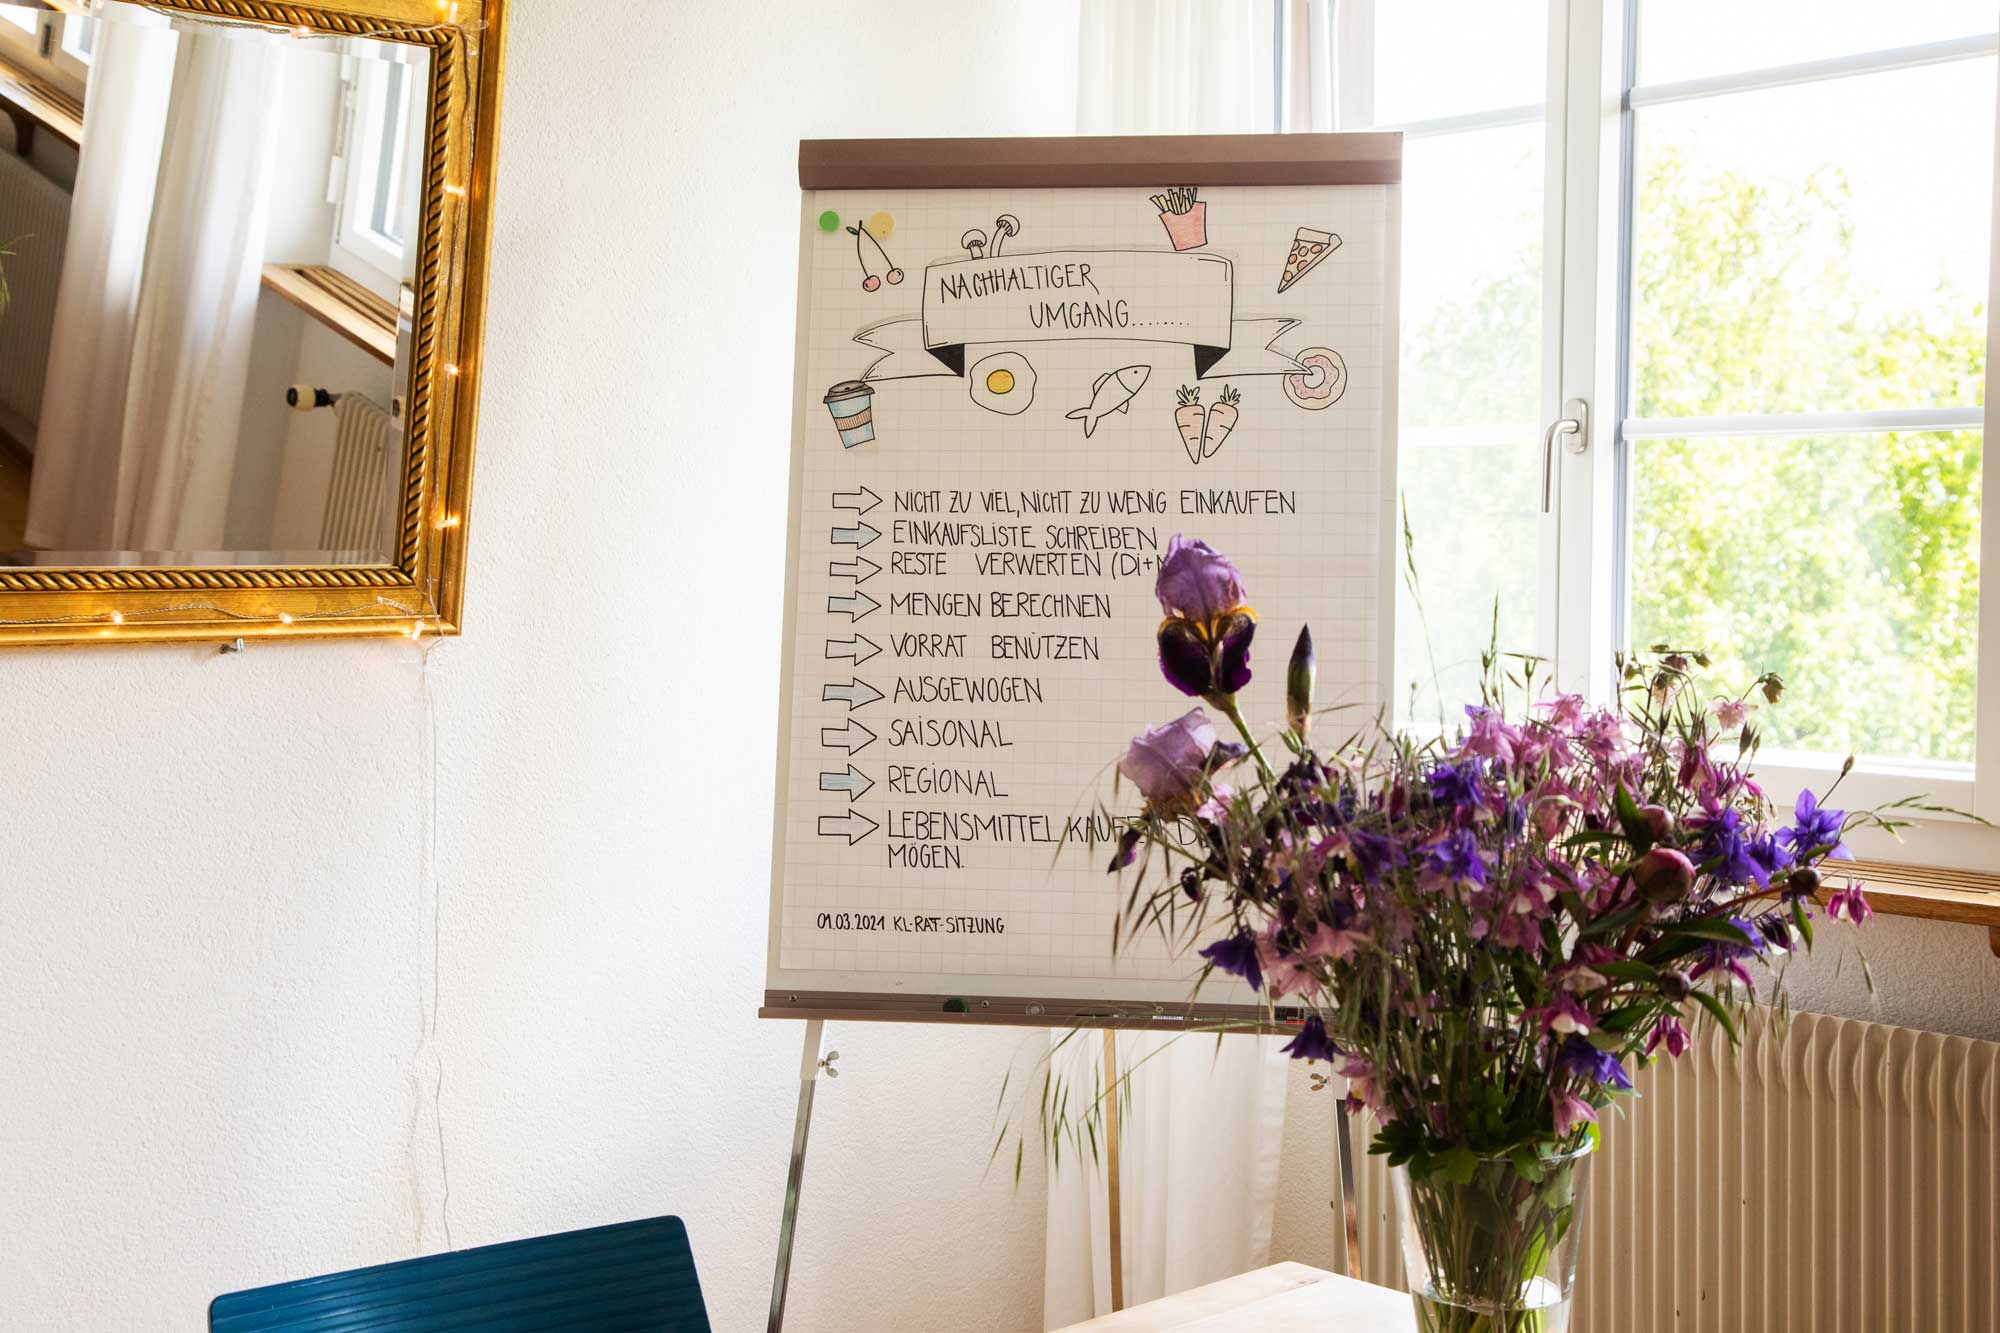 NACHHALTIGER
UMGANG........
NICHT ZU VIEL, NICHT ZU WENIG EINKAUFEN
EINKAUFSLISTE SCHREIBEN
RESTE VERWERTEN (Di+
MENGEN BERECHNEN
VORRAT BENÜTZEN
AUSGEWOGEN
SAISONAL
REGIONAL
LEBENSMITTEL
MÖGEN.
01.03.2021 KL-RAT-SITZUNG